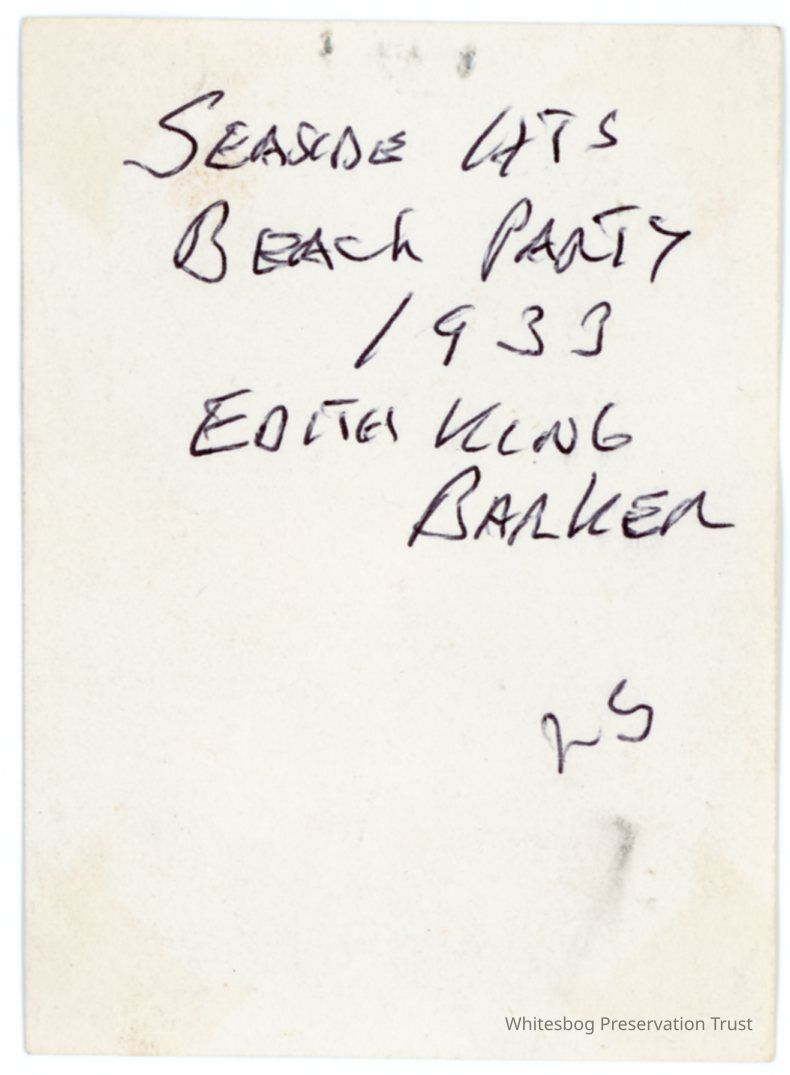 SEASIDE HTS
BEACh PARTY
1933
EDITH KING
BARKER
Whitesbog Preservation Trust